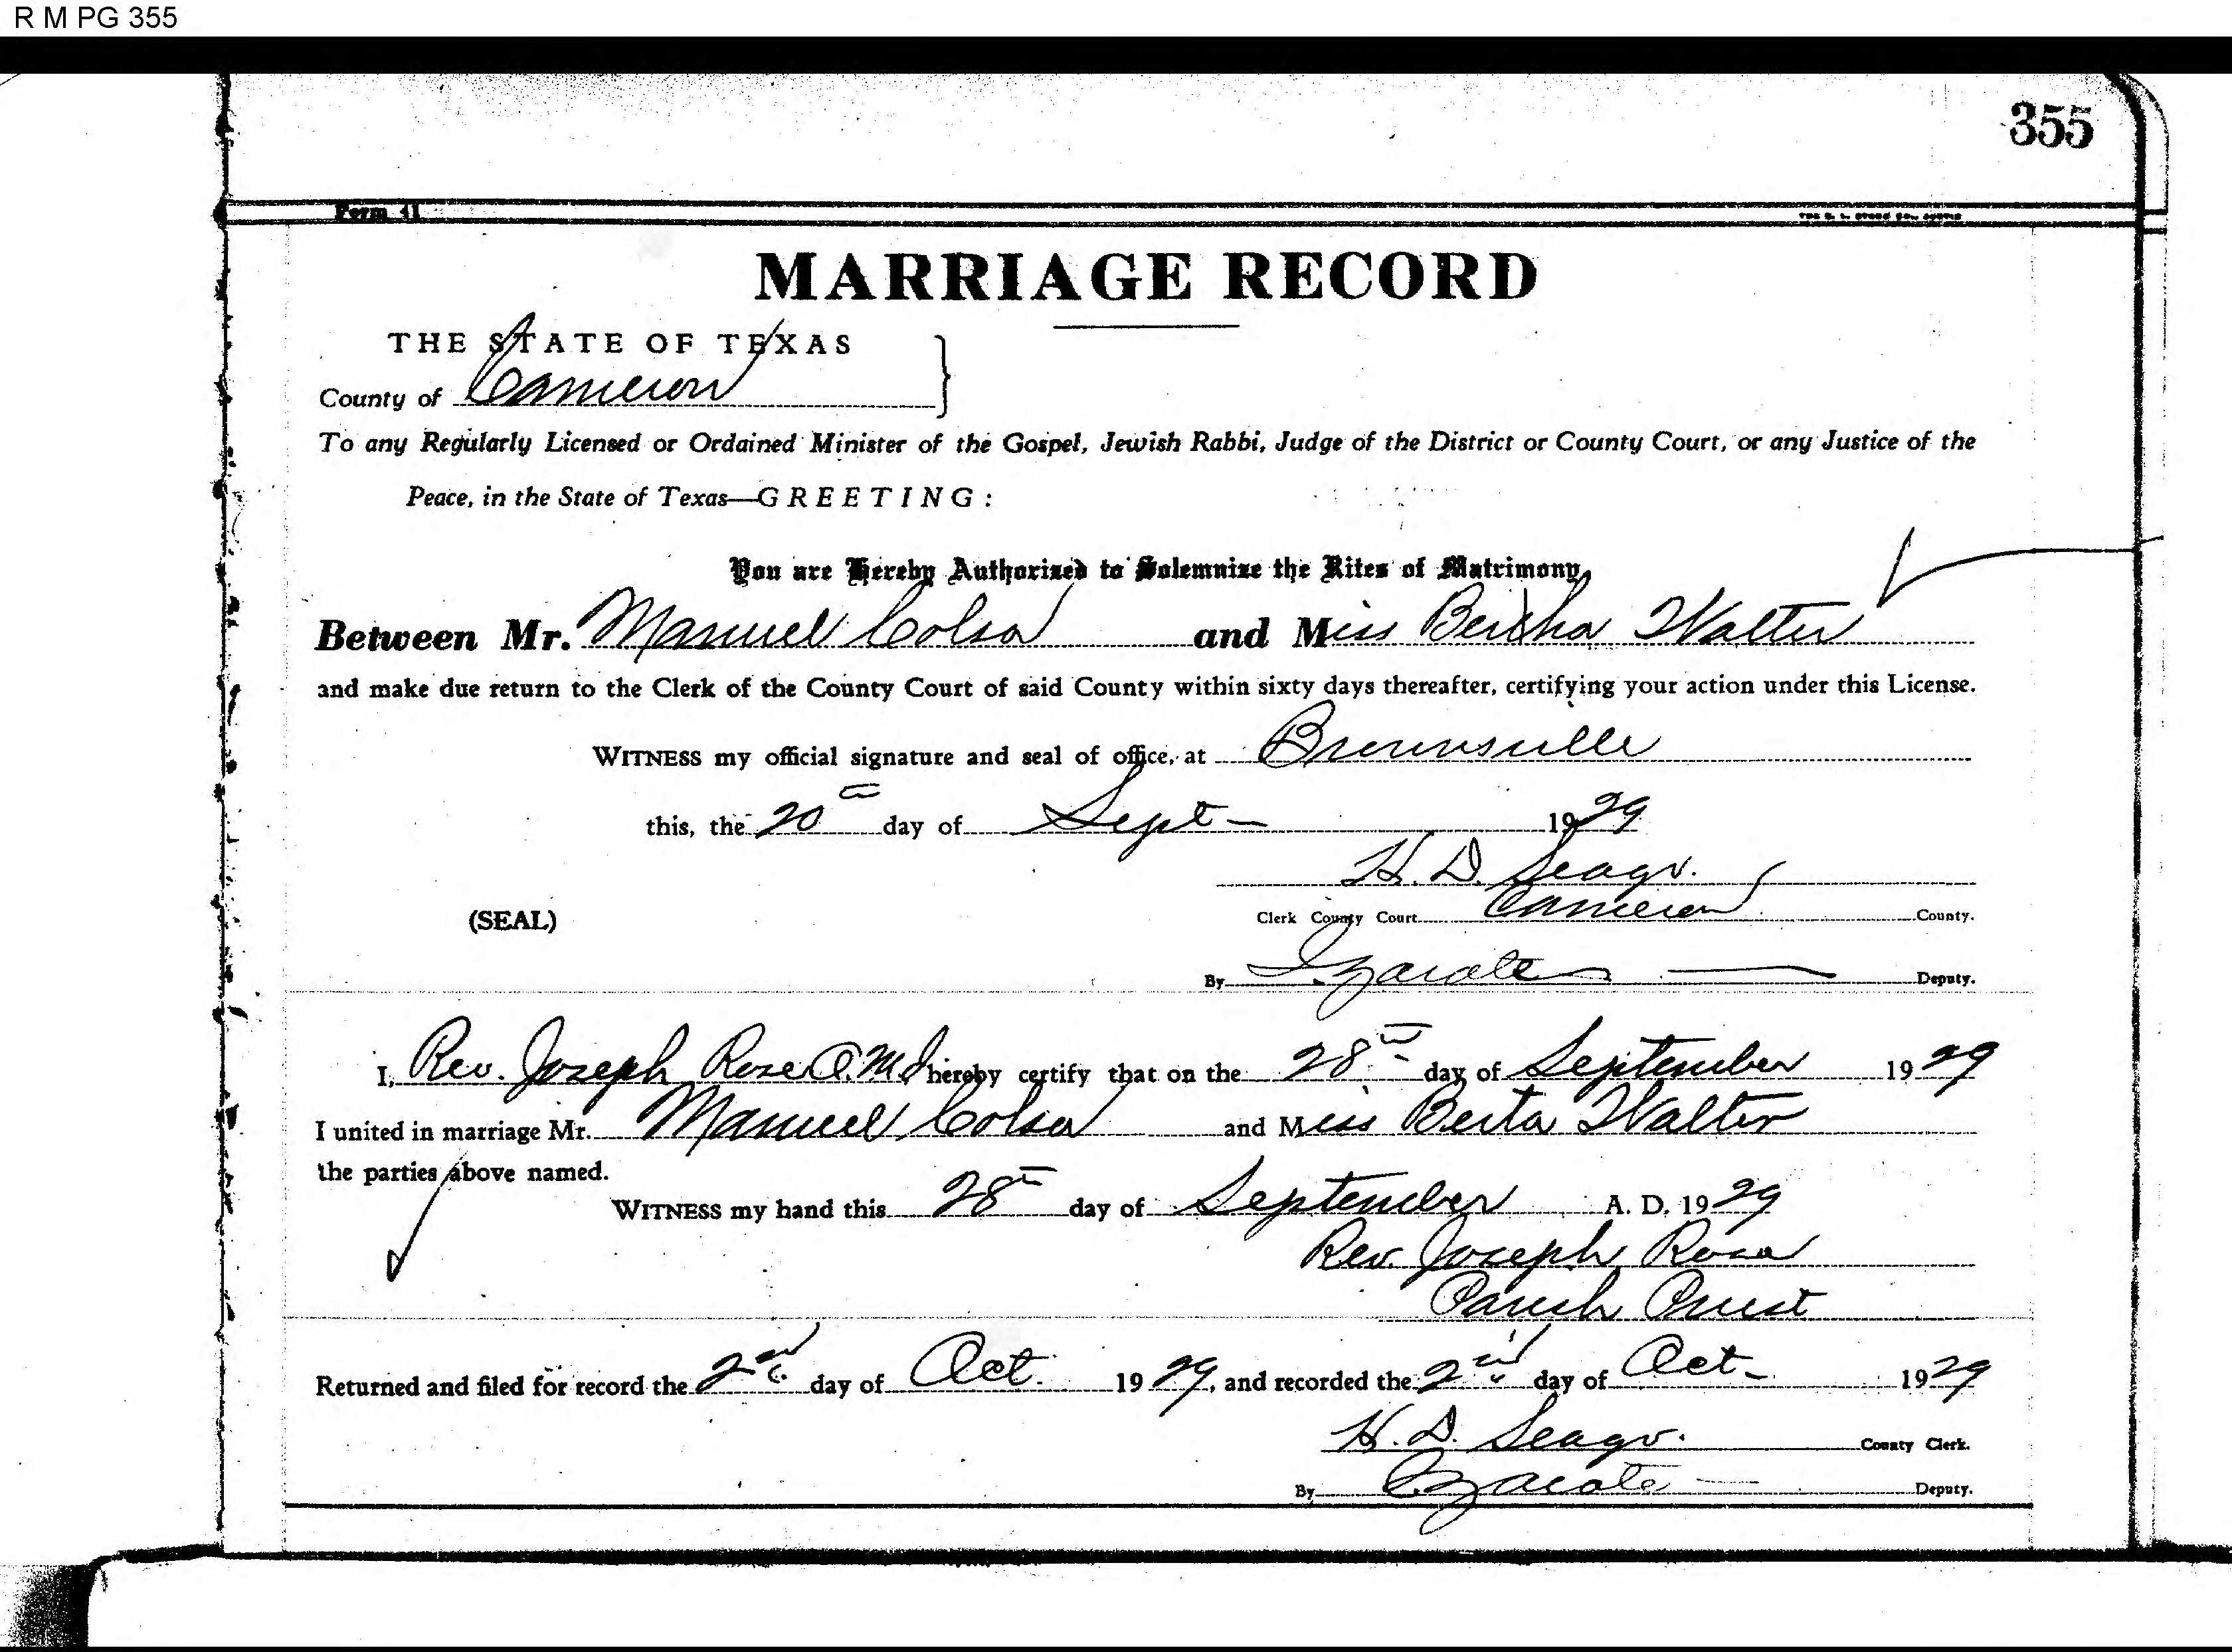 R M PG 355
355
Form 41
MARRIAGE RECORD
THE STATE OF TEXAS
County of Cameron
To any Regularly Licensed or Ordained Minister of the Gospel, Jewish Rabbi, Judge of the District or County Court, or any Justice of the
Peace, in the State of Texas—GREETING:
You are Hereby Authorized to Solemnize the Rites of Matrimony
Between Mr. Manuel Colsa and Miss Bertha Walter
and make due return to the Clerk of the County Court of said County within sixty days thereafter, certifying your action under this License.
WITNESS my official signature and seal of office, at Brownsville
this, the 20th day of Sept- 1929
H. D. Seago.
(SEAL) Clerk County Court Cameron County.
By Deputy.
I, Rev. Joseph Rose O.M.I hereby certify that on the 28th day of September 1929
I united in marriage Mr. Manuel Colsa and Miss Berta Walter
the parties above named.
WITNESS my hand this 28th day of September A. D. 1929
Rev. Joseph Rose
Parish Priest
Returned and filed for record the 2nd day of Oct. 1929, and recorded the 2nd day of Oct- 1929
H. D. Seago. County Clerk.
By Deputy.